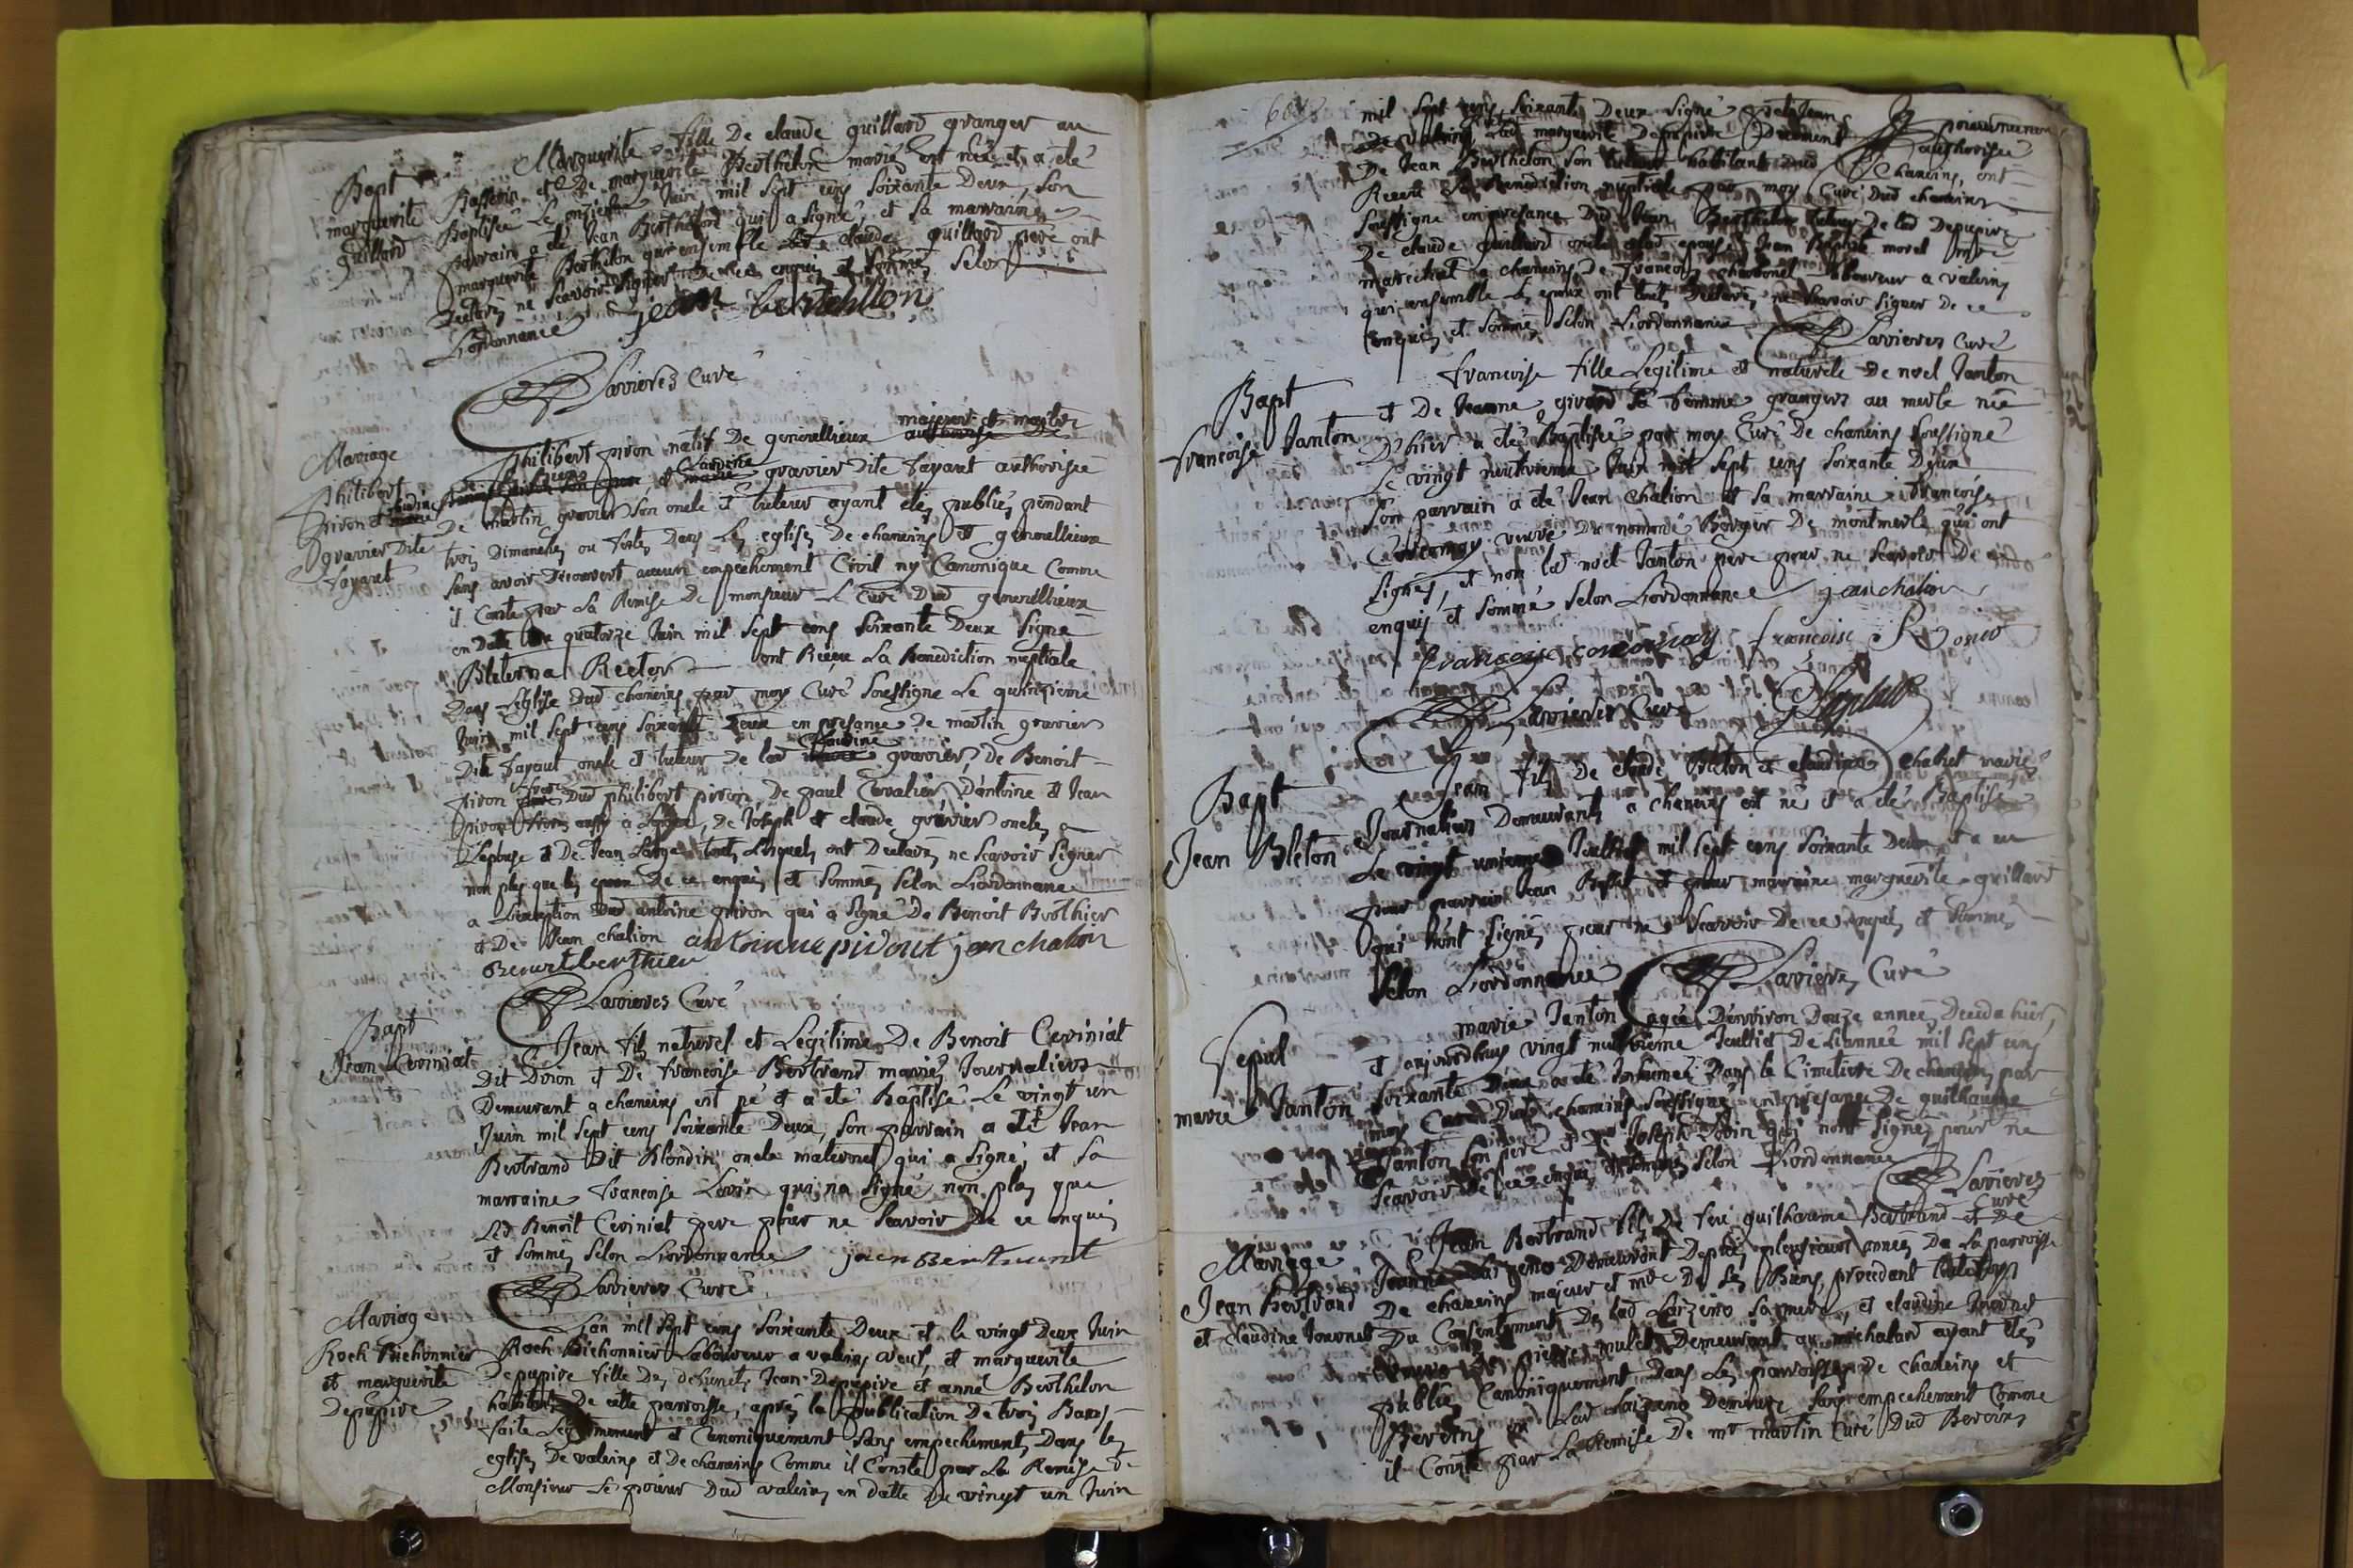 Bapt
marguerite
guillard
Marguerite fille De claude guillard granger au
Bafferin et De marguerite Berthelon mariés est née et a été
Baptisée Le onzieme Juin mil sept cens soixante Deux, son
parrain a été Jean Berthelon qui a signé, et sa marraine
marguerite Berthelon qui ensemble Led claude guillard pere ont
Declarés ne scavoir signer De ce enquis et sommés selon
Lordonnance jean berthellon
Lavieres Curé
Mariage
Philibert
piron et claudine
gravier Dite
fayaret
Philibert piron natif De genouillieux majeur et maitre
et claudine gravier Dite fayaut authorisée
De martin gravier son oncle et tuteur ayant étés publiés pendant
trois Dimanches ou festes Dans Les eglises De chaneins et genouillieux
sans avoir Decouvert aucun empechement Civil ny Canonique Comme
il Conste par La Remise De monsieur Le Curé Dud genouillieux
en Date Du quatorze Juin mil sept cens soixante Deux signé
Bleterna Recteur ont Receu La Benediction nuptiale
Dans Leglise Dud chaneins par moy Curé soussigné Le quinzieme
Juin mil sept cens soixante Deux en presance De martin gravier
Dite fayaut oncle et tuteur De lad claudine gravier, De Benoit
piron frere Dud philibert piron, De paul Cevalier D'antoine et Jean
piron, De Joseph et claude gravier oncles a
Lepouse et De Jean Large tous Lesquels ont Declarés ne scavoir signer
non plus que les epoux De ce enquis et sommés selon Lordonnance
a Lexception Dud antoine piron qui a signé De Benoit Berthier
et De Jean chalion antoinne pirout jan chalion
Benoit berthier
Lavieres Curé
Bapt
Jean Ceviniat
Jean fils naturel et Legitime De Benoit Ceviniat
Dit Dron et De francoise Bertrand mariés Journaliers
Demeurant a chaneins est né et a été Baptisé Le vingt un
Juin mil sept cens soixante Deux, son parrain a été Jean
Bertrand Dit Blondin oncle maternel qui a signé, et sa
marraine francoise Lovin qui na signé non plus que
Led Benoit Ceviniat pere pour ne scavoir De ce enquis
et sommés selon Lordonnance jaen Bertraunt
Lavieres Curé
Mariage
Roch Bichonnier
et marguerite
Depupire
Lan mil sept cens soixante Deux et le vingt Deux Juin
Roch Bichonnier Laboureur a valeins veuf, et marguerite
Depupire fille Des defunts Jean Depupire et anne Berthelon
habitant De cette parroisse, aprés la publication De trois Bans
faite Legitimement et Canoniquement sans empechement, Dans les
eglises De valeins et De chaneins Comme il Conste par La Remise De
Monsieur Le prieur Dud valeins en datte Du vingt un Juin
mil sept cens soixante Deux signé
De valeins, Lad marguerite Depupire Duement authorisée
De Jean Berthelon son tuteur habitant Dud Chaneins, ont
Receu La Benediction nuptiale par moy Curé Dud chaneins
soussigné en presance Dud Jean Berthelon tuteur De lad Depupire
De claude guillard oncle a lad epouse, Jean Baptiste morel
marechal a chaneins, De francois charbonet laboureur a valeins
qui ensemble Les epoux ont tous Declarés ne scavoir signer De ce
enquis et sommés selon Lordonnance Lavieres Curé
Bapt
francoise Janton
francoise fille Legitime et naturele De noel Janton
et De Jeanne girard sa femme grangers au merle née
D'hier a été Baptisée par moy Curé De chaneins soussigné
Le vingt neufvieme Juin mil sept cens soixante Deux
son parrain a été Jean Chalion et sa marraine francoise
Corcenay veuve Du nommé Borgir De montmerle qui ont
signés, et non led noel Janton pere pour ne scavoir De ce
enquis et sommé selon Lordonnance jean chalion
francoyse corcenay francoise
Lavieres Curé
Bapt
Jean Bleton
Jean fils De claude Bleton et claudine Chanet mariés
Journaliers Demeurants a chaneins est né et a été Baptisé
Le vingt unieme Jeulliet mil sept cens soixante Deux, et a eu
pour parrain Jean Buffet et pour marraine marguerite guillard
qui n'ont signés pour ne scavoir De ce enquis et sommés
selon Lordonnance Lavieres Curé
Sepul
marie Janton
marie Janton agée D'environ Douze années Decedé hier,
et aujourdhuy vingt neufvieme Jeulliet De Lannée mil sept cens
soixante Deux a été Inhumée Dans le Cimetiere De chaneins par
moy Curé Dud chaneins soussigné en presance De guilhaume
Janton son pere et De Joseph Lovin qui nont signés pour ne
scavoir De ce enquis et sommés selon Lordonnance
Lavieres
Curé
Mariage
Jean Bertrand
et claudine Journet
Jean Bertrand fils De feu guilhaume Bertrand et De
Jeanne Laizeno Demeurant Depuis plusieurs années De La parroisse
De chaneins majeur et mtre De ses Biens, procedant
Du Consentement De lad Laizeno sa mere, et claudine Journet
veuve De pierre mulet Demeurant au michalan ayant étés
publiés Canoniquement Dans Les parroisses De chaneins et
Bereins ou Lad Laizeno Demeure sans empechement Comme
il Conste par La Remise De mr martin Curé Dud Bereins